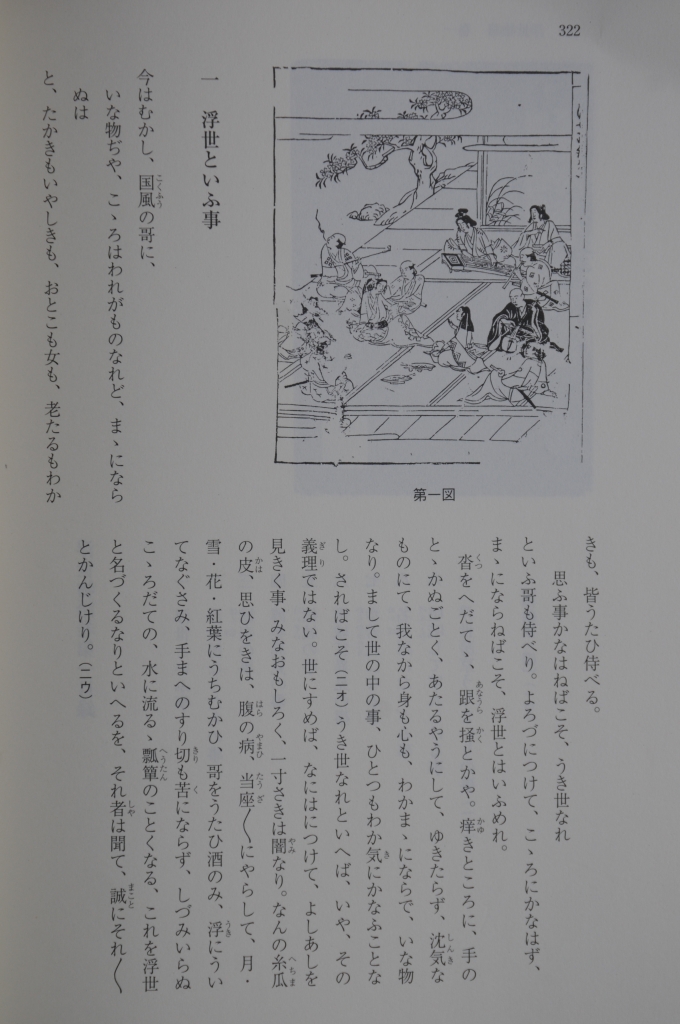 322
第一図
一　浮世といふ事
今はむかし、国風の哥に、
いな物ぢや、こゝろはわれがものなれど、まゝになら
ぬは
と、たかきもいやしきも、おとこも女も、老たるもわか
きも、皆うたひ侍べる。
思ふ事かなはねばこそ、うき世なれ
といふ哥も侍べり。よろづにつけて、こゝろにかなはず、
まゝにならねばこそ、浮世とはいふめれ。
沓をへだてゝ、跟を掻とかや。痒きところに、手の
とゝかぬごとく、あたるやうにして、ゆきたらず、沈気な
ものにて、我なから身も心も、わかまゝにならで、いな物
なり。まして世の中の事、ひとつもわか気にかなふことな
し。さればこそ（二オ）うき世なれといへば、いや、その
義理ではない。世にすめば、なにはにつけて、よしあしを
見きく事、みなおもしろく、一寸さきは闇なり。なんの糸瓜
の皮、思ひをきは、腹の病、当座〳〵にやらして、月・
雪・花・紅葉にうちむかひ、哥をうたひ酒のみ、浮にうい
てなぐさみ、手まへのすり切も苦にならず、しづみいらぬ
こゝろだての、水に流るゝ瓢簞のことくなる、これを浮世
と名づくるなりといへるを、それ者は聞て、誠にそれ〳〵
とかんじけり。（二ウ）